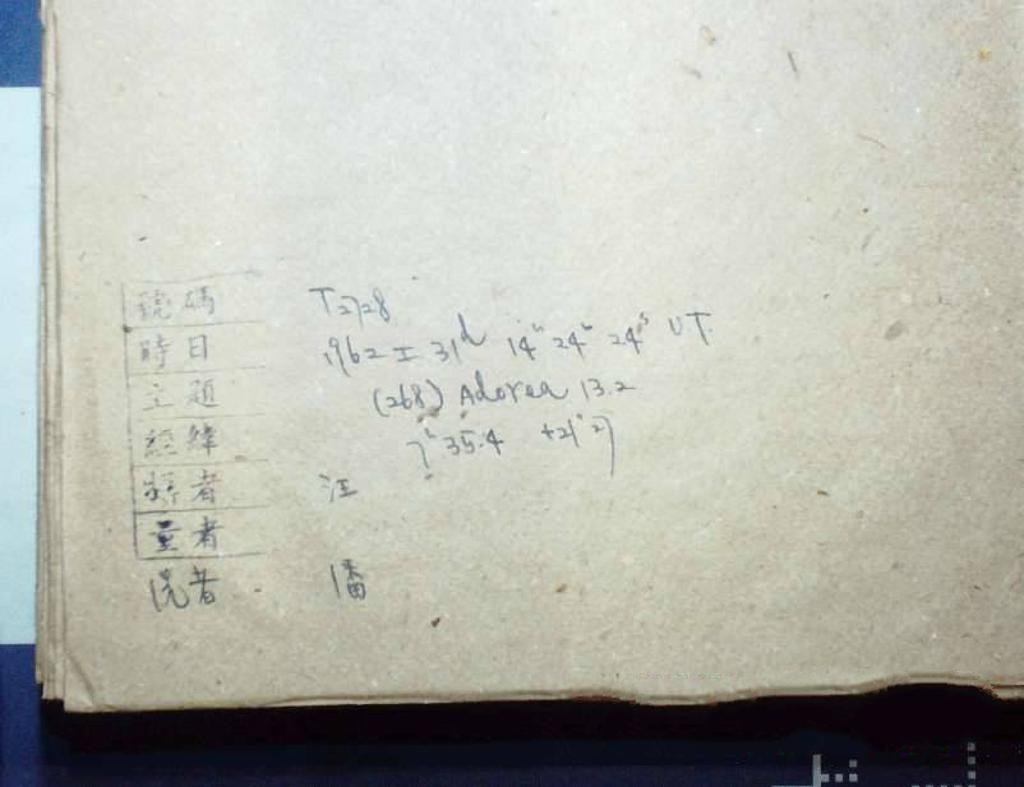 號碼 T2728
時日 1962 I 31d 14h 24h 24s UT
主題 (268) Adorea 13.2
經緯 7h 35.4 +21° 27
者 汪
量者
洗者 潘